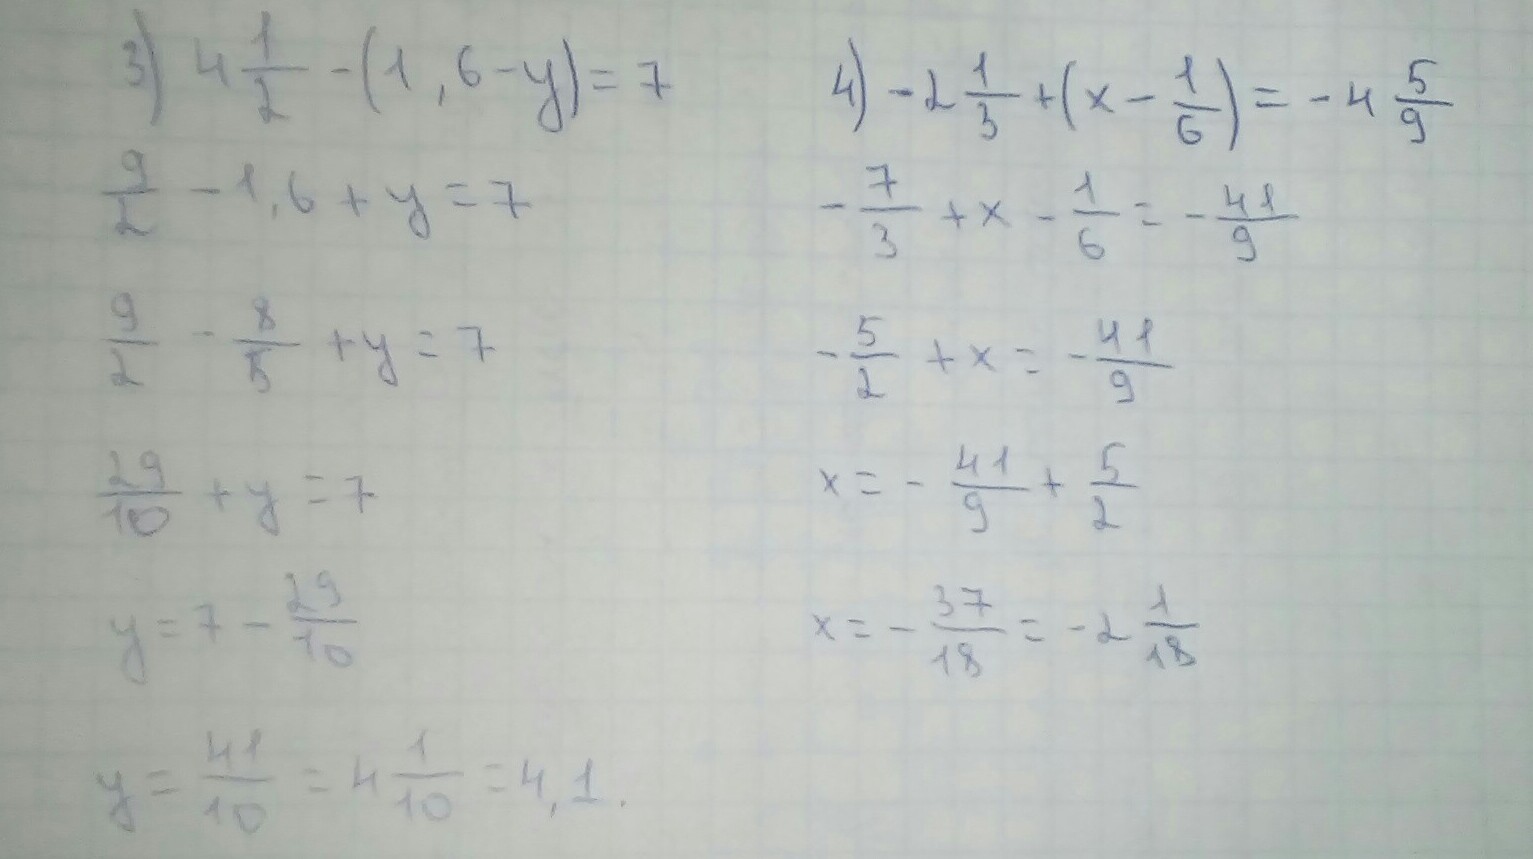 3) 4 1/2 - (1,6 - y) = 7
9/2 - 1,6 + y = 7
9/2 - 8/5 + y = 7
29/10 + y = 7
y = 7 - 29/10
y = 41/10 = 4 1/10 = 4,1.
4) -2 1/3 + (x - 1/6) = -4 5/9
-7/3 + x - 1/6 = -41/9
-5/2 + x = -41/9
x = -41/9 + 5/2
x = -37/18 = -2 1/18